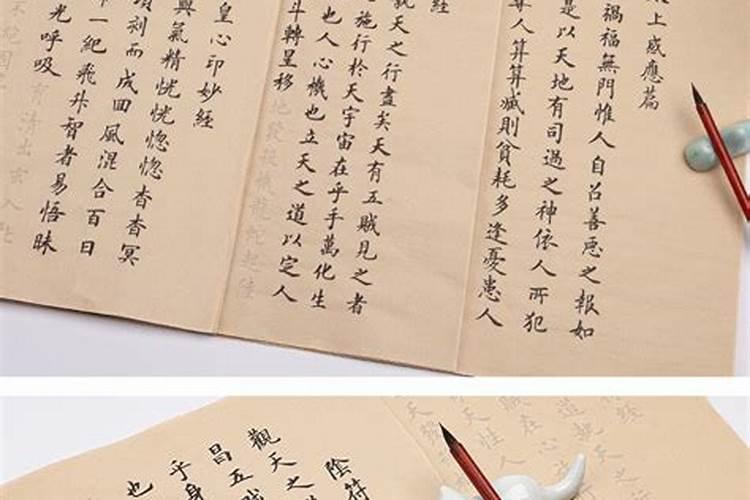 上感應篇
禍福無門惟人自召善惡之報如
是以天地有司過之神依人所犯
人算算減則貧耗多逢憂患人
經
天之行盡矣天有五賊見之者
施行於天宇宙在乎手萬化生
也人心機也立天之道以定人
斗轉星移地發殺機龍蛇起陸
皇心印妙經
與氣精恍恍惚惚杳杳冥
刻而成回風混合百日
一紀飛升智者易悟昧
光呼吸育清出玄入牝
陰符
觀天之
昌五賊
乎身
也
經
道執天
賊在心
天性人
天